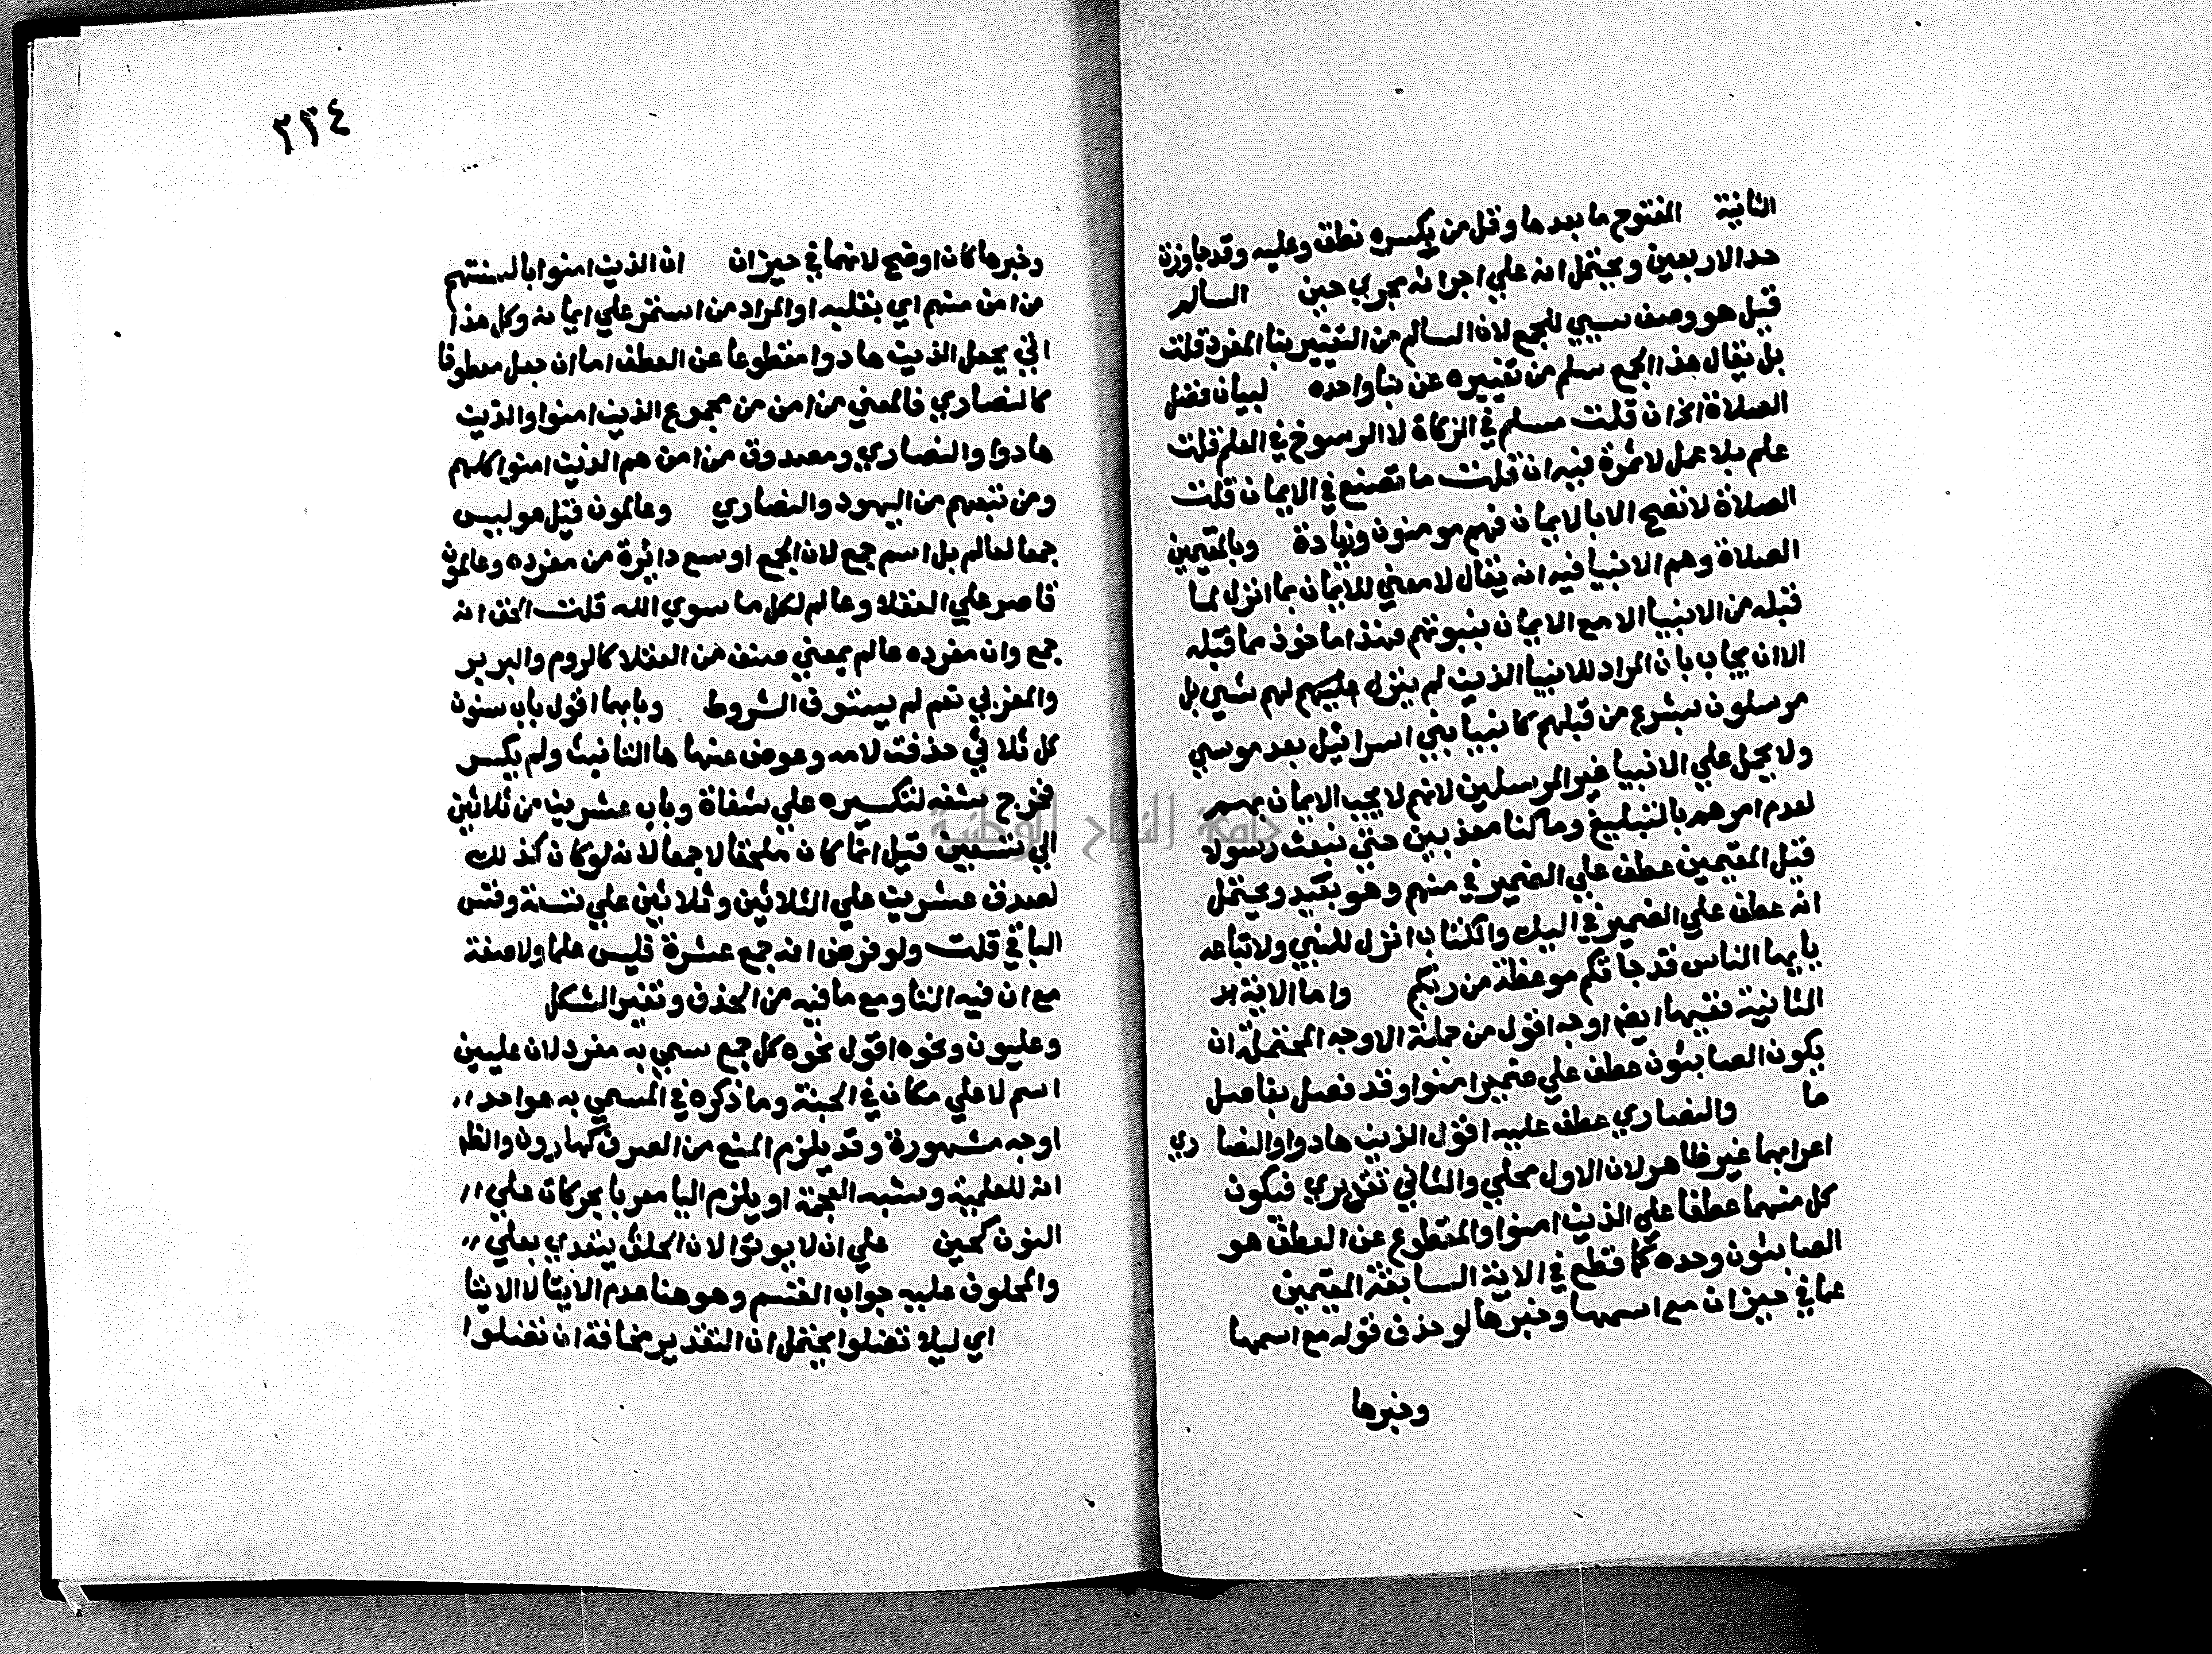 الثانية المفتوح ما بعدها وقل من يكسره نطق وعليه وقد جاوزت
حد الاربعين ويحتمل انه علي اجرائه مجري حين السالم
قيل هو وصف سببي للجمع لان السالم من التغيير بنا المفرد قلت
بل يقال هذا الجمع سلم من تغييره عن بنا واحده لبيان فضل
الصلاة اخ ان قلت مسلم في الزكاة لا الرسوخ في العلم قلت
علم بلا عمل لا ثمرة فيه ان قلت ما تصنع في الايمان قلت
الصلاة لا تصح الا بالايمان فهم مومنون وزيادة وبالمقيمين
الصلاة وهم الانبيا فيه انه يقال لا معني للايمان بما انزل لما
قبله من الانبيا الا مع الايمان بنبوتهم فهذا ماخوذ مما قبله
الا ان يجاب بان المراد للانبيا الذين لم ينزل عليهم لهم شي بل
مرسلون بشرع من قبلهم كانبيا بني اسرائيل بعد موسي
ولا يحمل علي الانبيا غير المرسلين لانهم لا يجب الايمان بهم
لعدم امرهم بالتبليغ وما كنا معذبين حتي نبعث رسولا
قيل المقيمين عطف علي الضمير في منهم وهو بعيد ويحتمل
انه عطف علي الضمير في اليك والكتاب انزل للنبي ولاتباعه
يايها الناس قد جاتكم موعظة من ربكم واما الاية
الثانية ففيها ايضا اوجه اقول من جملة الاوجه المحتملة ان
يكون الصابئون عطف علي ضمير امنوا وقد فصل بفاصل
ما والنصاري عطف عليه اقول الذين هادوا والنصا ري
اعرابهما غير ظاهر لان الاول محلي والثاني تقديري فيكون
كل منهما عطفا علي الذين امنوا والمقطوع عن العطف هو
الصابئون وحده كما قطع في الاية السابقة المقيمين
عما في حيز ان مع اسمها وخبرها لو حذف قوله مع اسمها
وخبرها
٢٣٤
وخبرها كان اوضح لانهما في حيز ان ان الذين امنوا بالسنتهم
من امن منهم اي بقلبه او المراد من استمر علي ايمانه وكل هذا
اني يجعل الذين هادوا مقطوعا عن العطف اما ان جعل معطوفا
كالنصاري فالمعني من امن من مجموع الذين امنوا والذين
هادوا والنصاري ومصدوق من امن هم الذين امنوا كلهم
ومن تبعهم من اليهود والنصاري وعالمون قيل هو ليس
جمعا لعالم بل اسم جمع لان الجمع اوسع دائرة من مفرده وعالمون
قاصر علي العقلا وعالم لكل ما سوي الله قلت الحق انه
جمع وان مفرده عالم بمعني صنف من العقلا كالروم والبربر
والمغربي نعم لم يستوف الشروط وبابها اقول باب سنون
كل ثلاثي حذفت لامه وعوض عنها ها التانيث ولم يكسر
فخرج شفه لتكسيره علي شفاة وباب عشرين من ثلاثين
الي تسعين قيل انما كان ملحقا لا جمعا لانه لو كان كذلك
لصدق عشرين علي الثلاثين وثلاثين علي تسعة وقس
الباقي قلت ولو فرض انه جمع عشرة فليس علما ولا صفة
مع ان فيه التا ومع ما فيه من الحذف وتغير الشكل
وعليون ونحوه اقول نحوه كل جمع سمي به مفرد لان عليين
اسم لاعلي مكان في الجنة وما ذكره في المسمي به هو احد
اوجه مشهورة وقد يلزم المنع من الصرف كهارون والظا
انه للعلمية وشبه العجمة او يلزم اليا معربا بحركات علي
النون كحين علي ان لا يوتوا لان الحلف يتعدي بعلي
والمحلوف عليه جواب القسم وهو هنا عدم الايتا لا الايتا
اي ليلا تضلوا يحتمل ان التقدير مخافة ان تضلوا